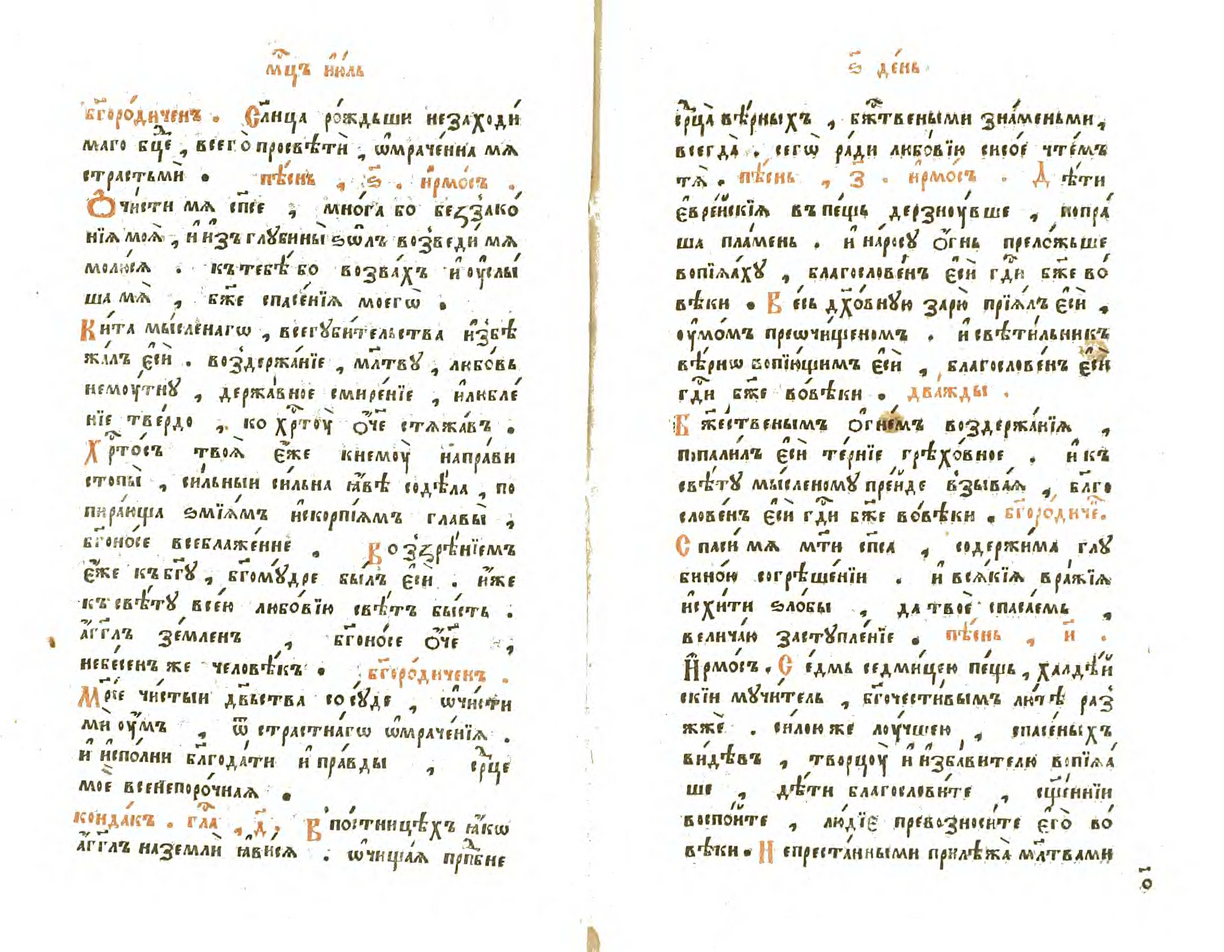 мц҃ъ ію́ль
бг҃оро́диченъ . Сл҃нца ро́ждьши незаходи́
маго бц҃е , всего̀ просвѣти̂ , ѡ҆мраче́нна мѧ
страстьмѝ . пѣ́снь , ѕ҃ . і҆рмо́съ .
Ѻ҆чи́сти мѧ сп҃се , мно́га бо беззако́
нїѧ моѧ̀ , и҆и҆зъ глубины̀ ѕѡ́лъ возведи́ мѧ
молю́сѧ . къ тебѣ́ бо возва́хъ и҆оу҆слы́
ша мѧ̀ , бж҃е спасе́нїѧ моегѡ̀ .
Ки́та мы́сленагѡ , всегуби́тельства и҆збѣ
жа́лъ є҆сѝ . воздержа́нїе , мл҃тву , любо́вь
немоу́тну , держа́вное смире́нїе , и҆любле́
нїе тве́рдо , ко хрⷭ҇тоу̀ ѻ҆́ч҃е стѧжа́въ .
Хрⷭ҇то́съ твоѧ̀ є҆́же кнемоу̀ напра́ви
стопы̀ , си́льныи си́льна ꙗ҆́вѣ содѣ́ла , по
пира́юща ѕмїѧ́мъ и҆скорпїѧ́мъ главы̀ ,
бг҃оно́се всеблаже́нне . Воззрѣ́нїемъ
є҆́же къ бг҃у , бг҃ому́дре бы́лъ є҆сѝ . и҆́же
къ свѣ́ту все́ю любо́вїю свѣ́тъ бы́сть .
а҆́гг҃лъ зе́мленъ , бг҃оно́се ѻ҆́ч҃е ,
небе́сенъ же человѣ́къ . бг҃оро́диченъ .
Мр҃і́е чи́стыи дв҃ьства сосу́де , ѡ҆чи́сти
мѝ оу҆́мъ , ѿ стра́стнагѡ ѡ҆мраче́нїѧ .
и҆ и҆спо́лни бл҃года́ти и҆ пра́вды , срⷣце
моѐ всенепоро́чнаѧ .
конда́къ . гла́ , д҃ , Впо́стницѣхъ ꙗ҆́кѡ
а҆́гг҃лъ на землѝ ꙗ҆ви́сѧ . ѡ҆чища́ѧ прп҃бне
ѕ҃ де́нь
срⷣца̀ вѣ́рныхъ , бж҃твеными зна́меньми ,
всегда̀ . сегѡ̀ ра́ди любо́вїю сисо́е чте́мъ
тѧ̀ . пѣ́снь , з҃ . і҆рмо́съ . Дѣ́ти
є҆вре́йскїѧ в пе́щь дерзноу́вше , попра́
ша пла́мень . и҆ на́росу ѻ҆́гнь прело́жьше
вопїѧ́ху , благослове́нъ є҆сѝ гдⷭ҇и бж҃е во́
вѣки . Ве́сь дх҃о́вную зарю̀ прїѧ́лъ є҆сѝ ,
оу҆мо́мъ преѡчи́щеномъ . и҆ свѣти́льникъ
вѣ́рнѡ вопїю́щимъ є҆сѝ , благослове́нъ є҆сѝ
гдⷭ҇и бж҃е во́вѣки . два́жды .
Бж҃е́ственымъ ѻ҆гне́мъ воздержа́нїѧ ,
попали́лъ є҆сѝ те́рнїе грѣхо́вное . и҆ къ
свѣ́ту мы́сленому пре́йде взыва́ѧ , бл҃го
слове́нъ є҆сѝ гдⷭ҇и бж҃е во́вѣки . бг҃оро́диче .
Спаси́ мѧ мт҃и сп҃са , содержи́ма глу
бино́ю согрѣше́нїи . и҆ всѧ́кїѧ вра́жїѧ
и҆схи́ти ѕло́бы , да твоѐ спаса́емь ,
велича́ю заступле́нїе . пѣ́снь , и҃ .
І҆рмо́съ . Се́дмь седми́цею пе́щь , халдѣ́й
скїи мучи́тель , бг҃очести́вымъ лю́тѣ раз
жжѐ . си́лою же лоу́чшею , спасе́ныхъ
ви́дѣвъ , творцоу̀ и҆ и҆зба́вителю вопїѧ́
ше , дѣ́ти благослови́те , сщ҃е́ннїи
воспо́йте , лю́дїе превозноси́те є҆го̀ во́
вѣки . Непреста́нными прилѣ́жа мл҃твами
о҃